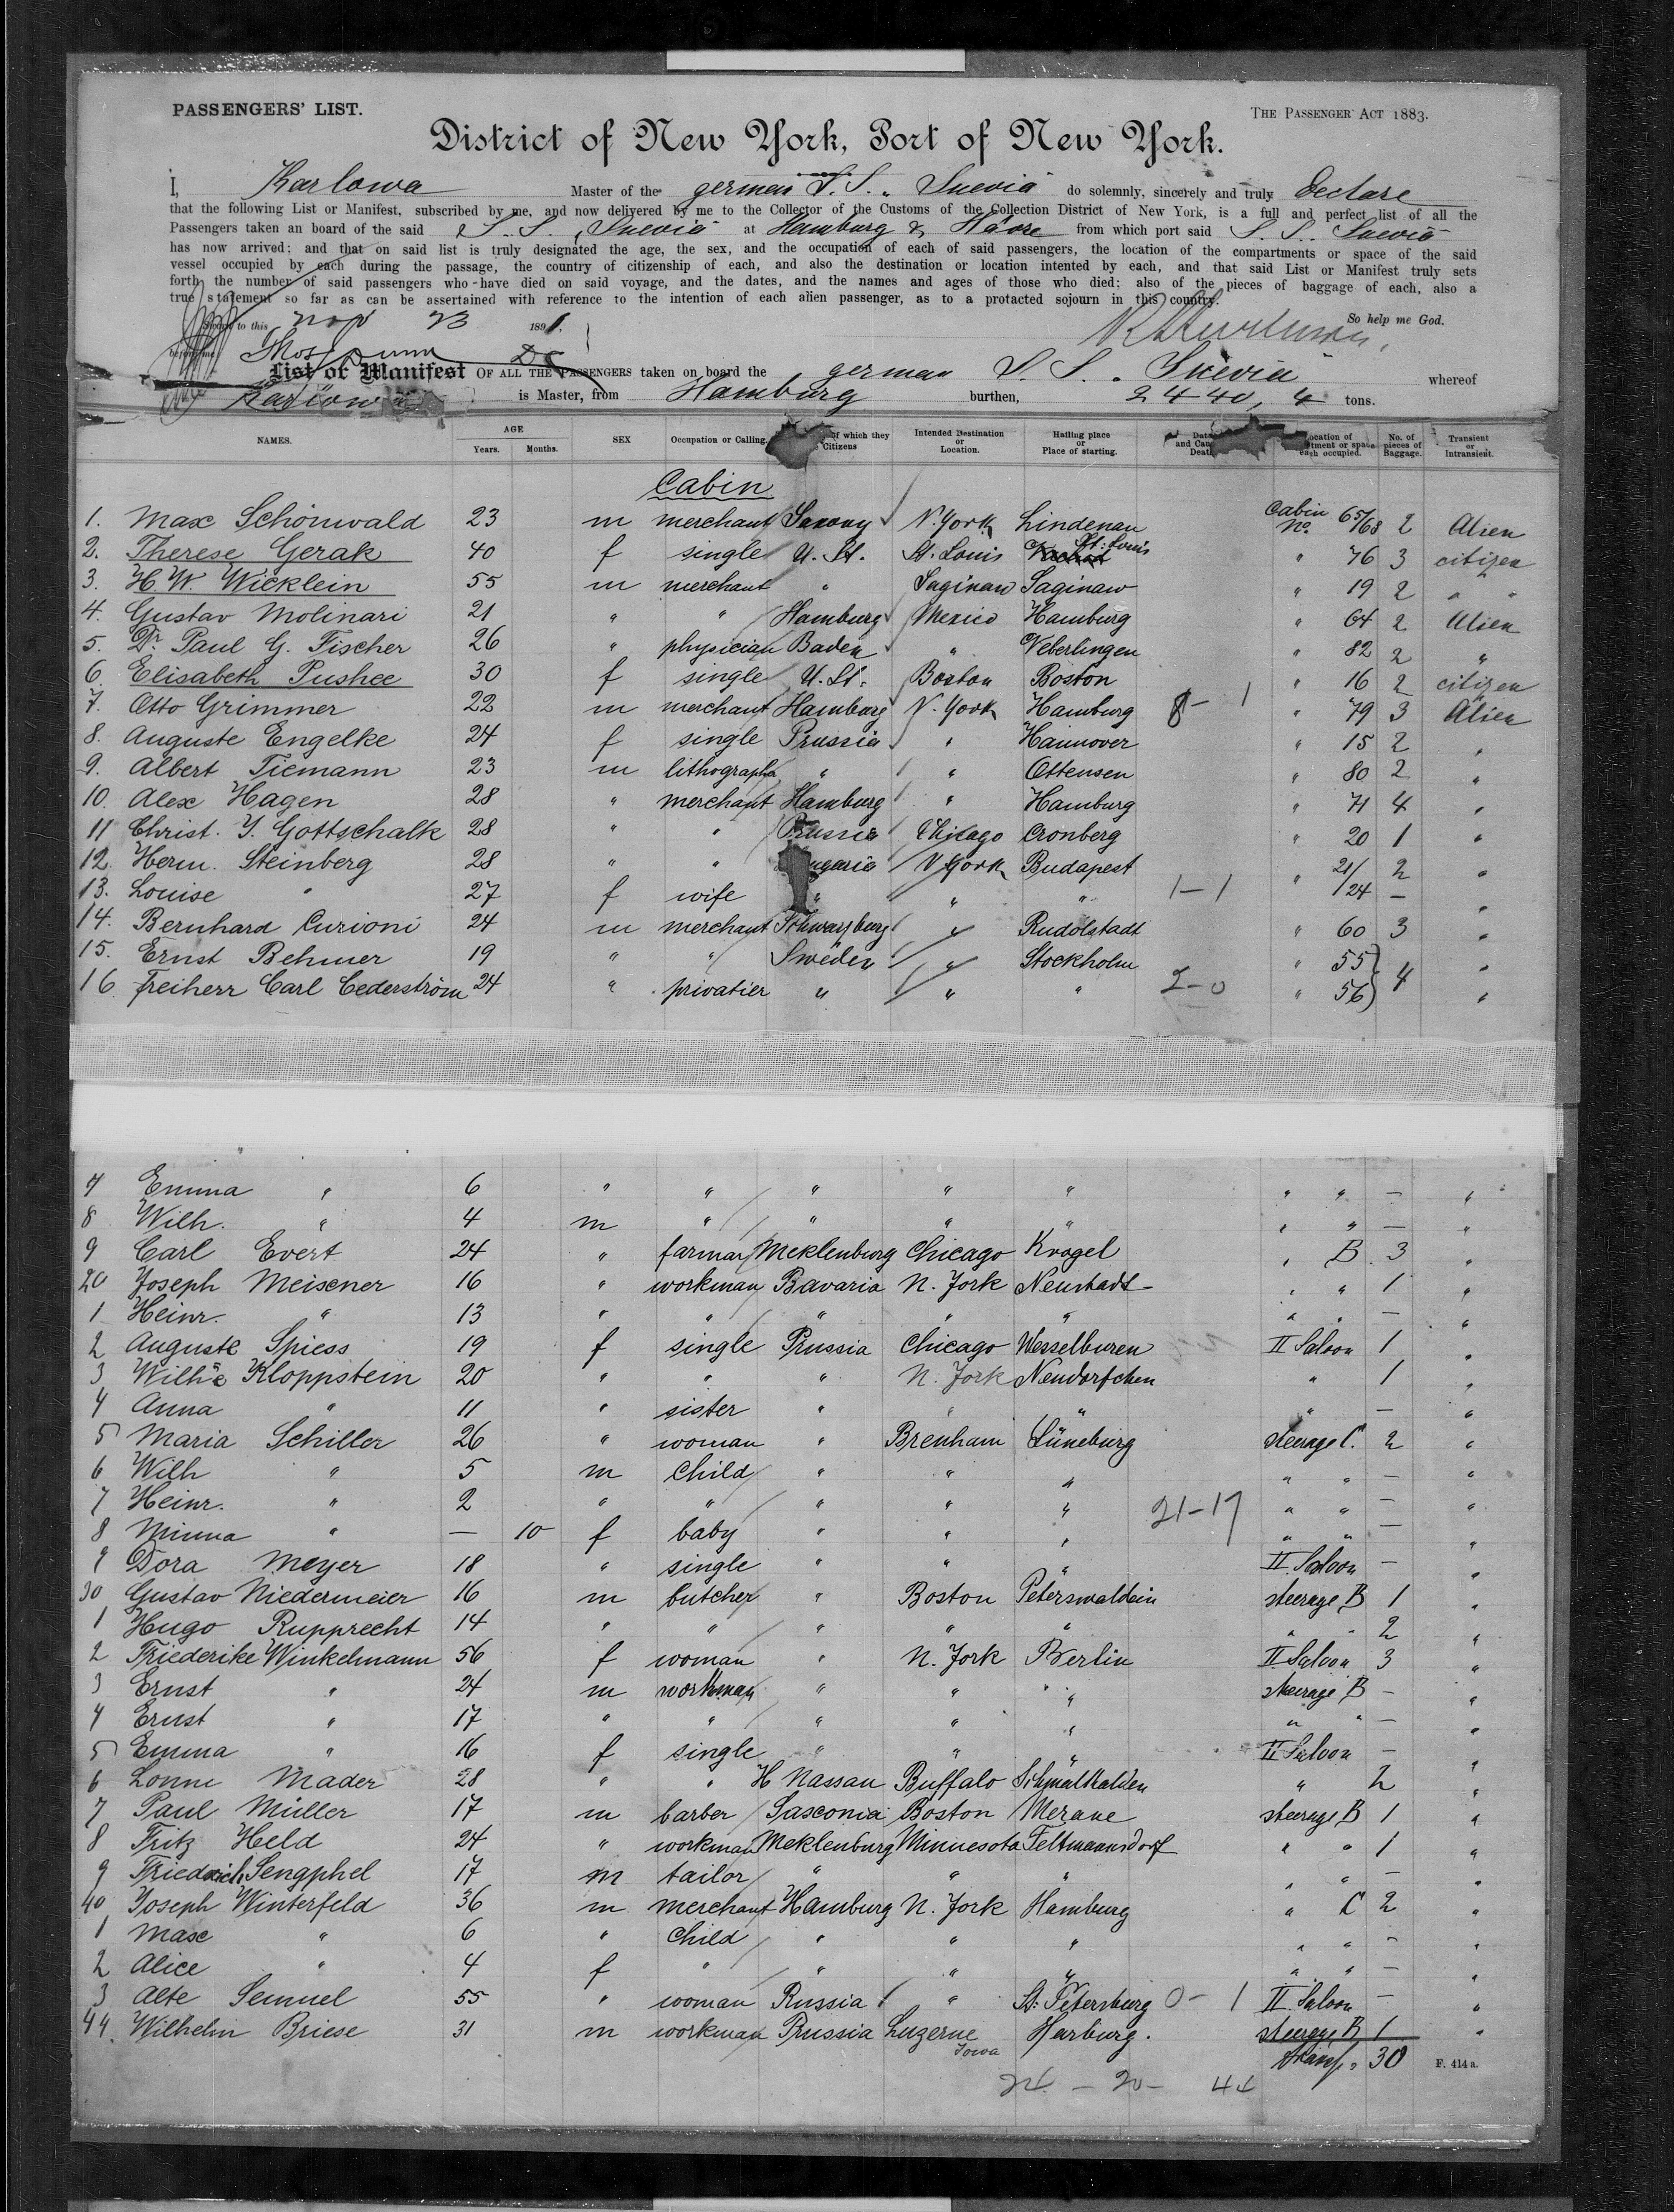 PASSENGERS' LIST.
THE PASSENGER ACT 1883.
District of New York, Port of New York.
I, Karlowa Master of the german S.S. „Suevia" do solemnly, sincerely and truly declare
that the following List or Manifest, subscribed by me, and now delivered by me to the Collector of the Customs of the Collection District of New York, is a full and perfect list of all the
Passengers taken on board of the said S.S. „Suevia" at Hamburg & Havre from which port said S.S. Suevia
has now arrived; and that on said list is truly designated the age, the sex, and the occupation of each of said passengers, the location of the compartments or space of the said
vessel occupied by each during the passage, the country of citizenship of each, and also the destination or location intented by each, and that said List or Manifest truly sets
forth the number of said passengers who have died on said voyage, and the dates, and the names and ages of those who died; also of the pieces of baggage of each, also a
true statement so far as can be assertained with reference to the intention of each alien passenger, as to a protacted sojourn in this country.
to this Nov 23 1891. So help me God.
Thos Dunn DC
List or Manifest OF ALL THE PASSENGERS taken on board the german S. S. „Suevia" whereof
Karlowa is Master, from Hamburg burthen, 2440,4 tons.
NAMES. AGE Years. Months. SEX Occupation or Calling. of which they Citizens Intended Destination or Location. Hailing place or Place of starting. Date and Cau Death ocation of tment or space each occupied. No. of pieces of Baggage. Transient or Intransient.
Cabin
1. Max Schönwald 23 m merchant Saxony N. York Lindenau Cabin No. 65/68 2 Alien
2. Therese Gerak 40 f single U. St. St. Louis St. Louis " 76 3 citizen
3. H. W. Wicklein 55 m merchant " Saginaw Saginaw " 19 2 " "
4. Gustav Molinari 21 " " Hamburg Mexico Hamburg " 64 2 Alien
5. Dr. Paul G. Fischer 26 " physician Baden " Ueberlingen " 82 2 "
6. Elisabeth Pushee 30 f single U. St. Boston Boston " 16 2 citizen
7. Otto Grimmer 22 m merchant Hamburg N. York Hamburg 8 - 1 " 79 3 Alien
8. Auguste Engelke 24 f single Prussia " Hannover " 15 2 "
9. Albert Tiemann 23 m lithograph " " Ottensen " 80 2 "
10. Alex Hagen 28 " merchant Hamburg " Hamburg " 71 4 "
11 Christ. Y. Gottschalk 28 " " Prussia Chicago Cronberg " 20 1 "
12. Herm. Steinberg 28 " " ngaria N York Budapest " 21/24 2 "
13. Louise " 27 f wife " " " 1 - 1 — "
14. Bernhard Curioni 24 m merchant Schwarzburg " Rudolstadt " 60 3 "
15. Ernst Behmer 19 " " Sweden " Stockholm " 55 "
16 Freiherr Carl Cederström 24 " privatier " " " 2 - 0 " 56 4 "
7 Emma " 6 " " " " " " " — "
8 Wilh. " 4 m " " " " " " — "
9 Carl Evert 24 " farmer Meklenburg Chicago Krogel " B 3 "
20 Joseph Meisener 16 " workman Bavaria N. York Neustadt " " 1 "
1 Heinr. " 13 " " " " " " " — "
2 Auguste Spiess 19 f single Prussia Chicago Wesselburen II Saloon 1 "
3 Wilh̄e Kloppstein 20 " " " N. York Neudorfchen " 1 "
4 Anna " 11 " sister " " " " — "
5 Maria Schiller 26 " woman " Brenham Lüneburg steerage C. 2 "
6 Wilh " 5 m child " " " " " — "
7 Heinr. " 2 " " " " " 21-17 " " — "
8 Minna " — 10 f baby " " " " " — "
9 Dora Meyer 18 " single " " " II Saloon — "
30 Gustav Niedermeier 16 m butcher " Boston Peterswaldein steerage B 1 "
1 Hugo Rupprecht 14 " " " " " " " 2 "
2 Friederike Winkelmann 56 f woman " N. York Berlin II Saloon 3 "
3 Ernst " 24 m workman " " " steerage B — "
4 Ernst " 17 " " " " " " " — "
5 Emma " 16 f single " " " II Saloon — "
6 Lonni Mader 28 " " H Nassau Buffalo Schmalkalden " 2 "
7 Paul Müller 17 m barber Sasconia Boston Merane steerage B 1 "
8 Fritz Held 24 " workman Meklenburg Minnesota Feltmannsdorf " " 1 "
9 Friedrich Sengphel 17 m tailor " " " " " — "
40 Joseph Winterfeld 36 m merchant Hamburg N. York Hamburg " C 2 "
1 Max " 6 " child " " " " " — "
2 Alice " 4 f " " " " " " — "
3 Alte Semuel 55 " woman Russia " St. Petersburg 0 - 1 II Saloon — "
44. Wilhelm Briese 31 m workman Prussia Luzerne Iowa Harburg. steerage B 1 "
transp. 30 F. 414 a.
24 - 20 - 44